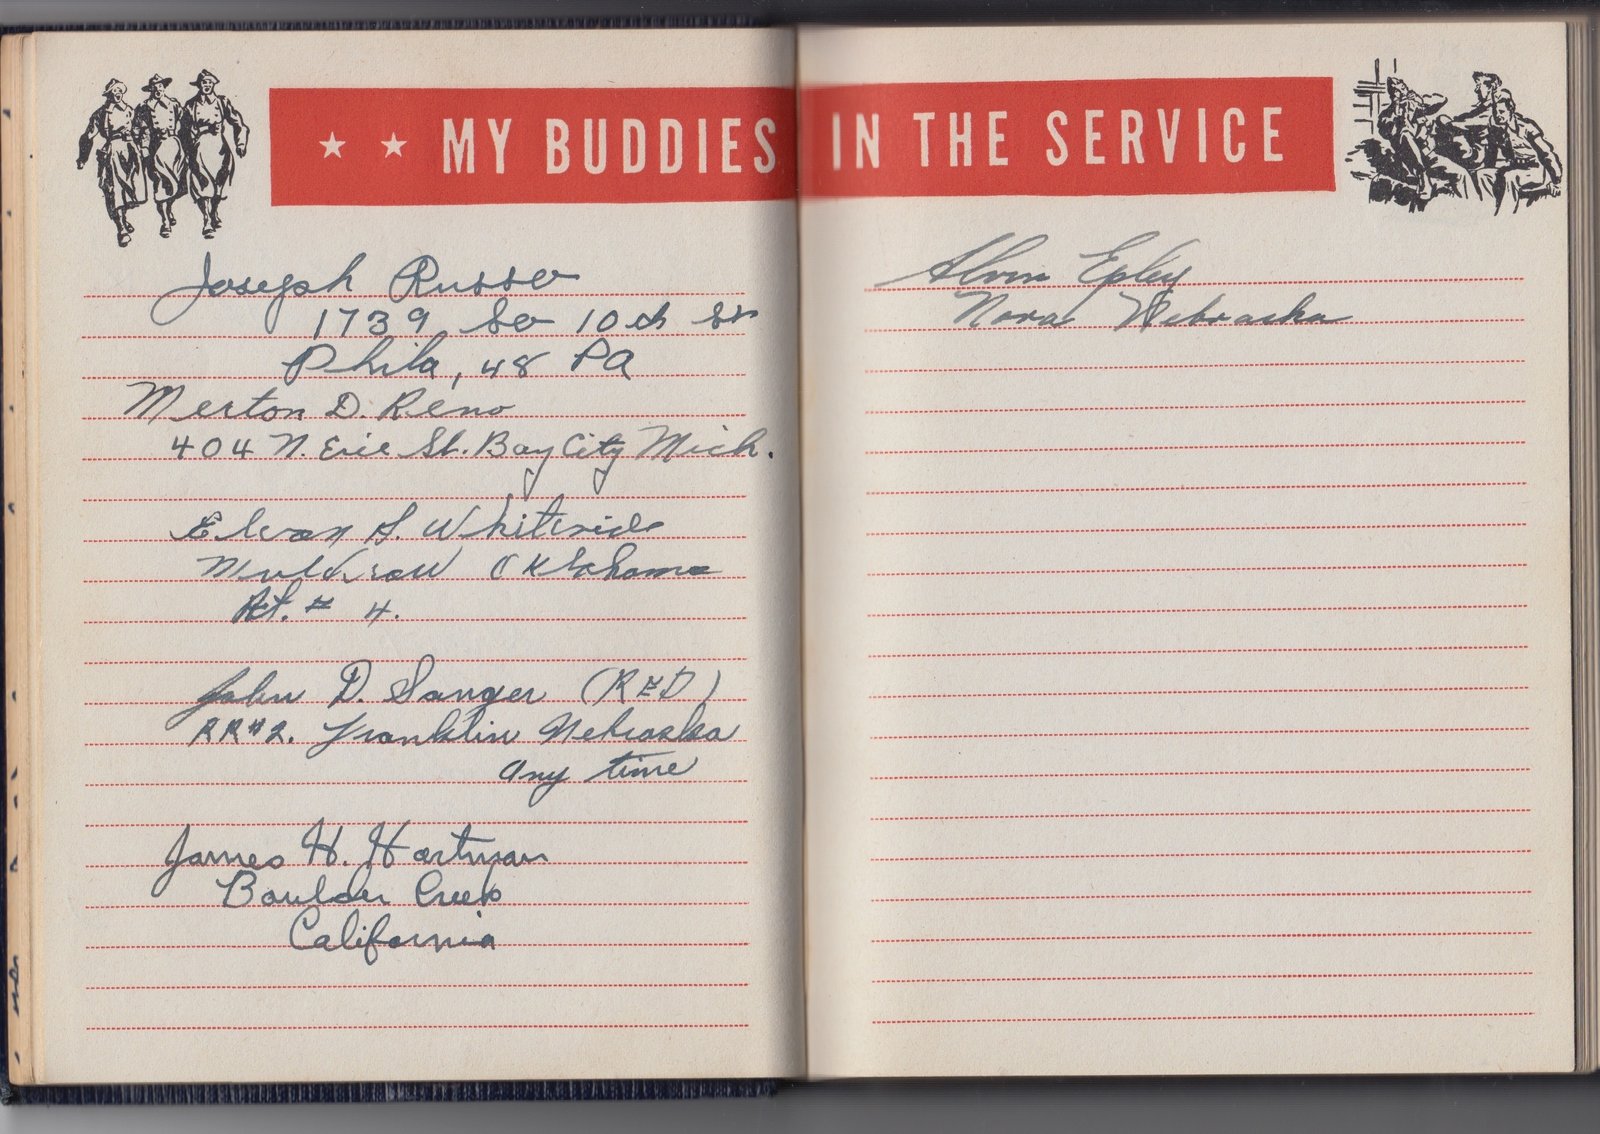 ★ ★ MY BUDDIES IN THE SERVICE
Joseph Russo
1739 So 10th St
Phila, 48 PA
Merton D. Reno
404 N. Erie St. Bay City Mich.
Elvan S. Whiteside
Muldrow Oklahoma
Rt. # 4.
John D. Sanger (RED)
RR#2. Franklin Nebraska
Any time
James H. Hartman
Boulder Creek
California
Alvin Epley
Nora Nebraska